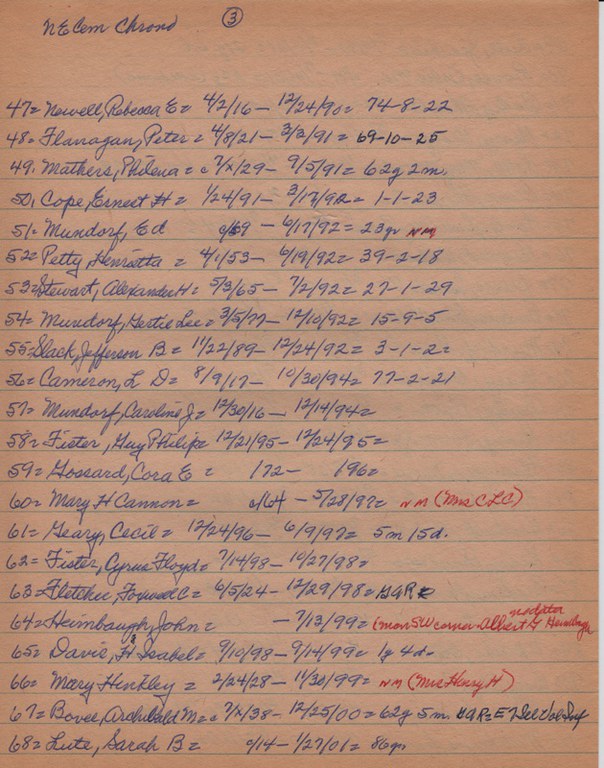 NE Cem Chrono ③
47= Newell, Rebecca E = 4/2/16 — 12/24/90 = 74-8-22
48= Flanagan, Peter = 4/8/21 — 3/3/91 = 69-10-25
49. Mathers, Philena = c 7/x/29 — 9/5/91 = 62y 2m.
50, Cope, Ernest H = 1/24/91 — 3/17/92 = 1-1-23
51= Mundorf, Ed c/69 — 6/17/92 = 23yr NM
52= Petty, Henrietta = 4/1/53 — 6/19/92 = 39-2-18
53= Stewart, Alexander H = 5/3/65 — 7/2/92 = 27-1-29
54= Mundorf, Gertie Lee = 3/5/77 — 12/10/92 = 15-9-5
55= Slack, Jefferson B = 11/22/89 — 12/24/92 = 3-1-2=
56= Cameron, L D = 8/9/17 — 10/30/94 = 77-2-21
57= Mundorf, Caroline J = 12/30/16 — 12/14/94=
58= Fister, Guy Philip = 12/21/95 — 12/24/95=
59= Gossard, Cora E = 172 — 196=
60= Mary H Cannon = c/64 — 5/28/97= NM (Mrs CLC)
61= Geary, Cecil = 12/24/96 — 6/9/97= 5m 15d.
62= Fister, Cyrus Floyd = 7/14/98 — 10/27/98=
63= Fletcher, C = 6/5/24 — 12/29/98 = GAR
64= Heimbaugh, John = — 7/13/99= (mon SW corner - Albert G Heimbaugh no data
65= Davis, H & Isabel = 9/10/98 — 9/14/99= 1y 4d.
66= Mary Hinkley = 2/24/28 — 11/30/99= NM (Mrs Henry H)
67= Bovee, Archibald M = c 7/x/38 — 12/25/00 = 62y 5m. GAR= E 7 Del Vol Inf
68= Lute, Sarah B = c/14 — 1/27/01 = 86yr